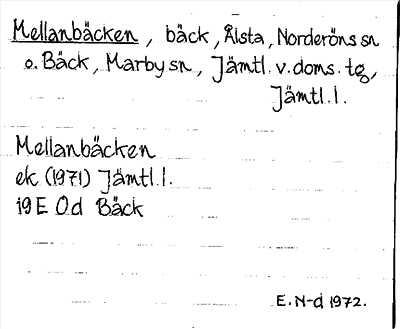 Mellanbäcken, bäck, Ålsta, Norderöns sn
o. Bäck, Marby sn, Jämtl. v. doms. tg,
Jämtl. l.
Mellanbäcken
ek (1971) Jämtl. l.
19E 0d Bäck
E. N-d 1972.